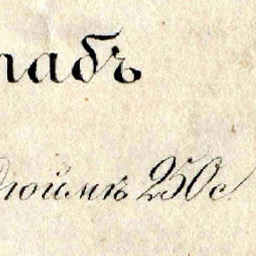 табъ
дюймѣ 250 с